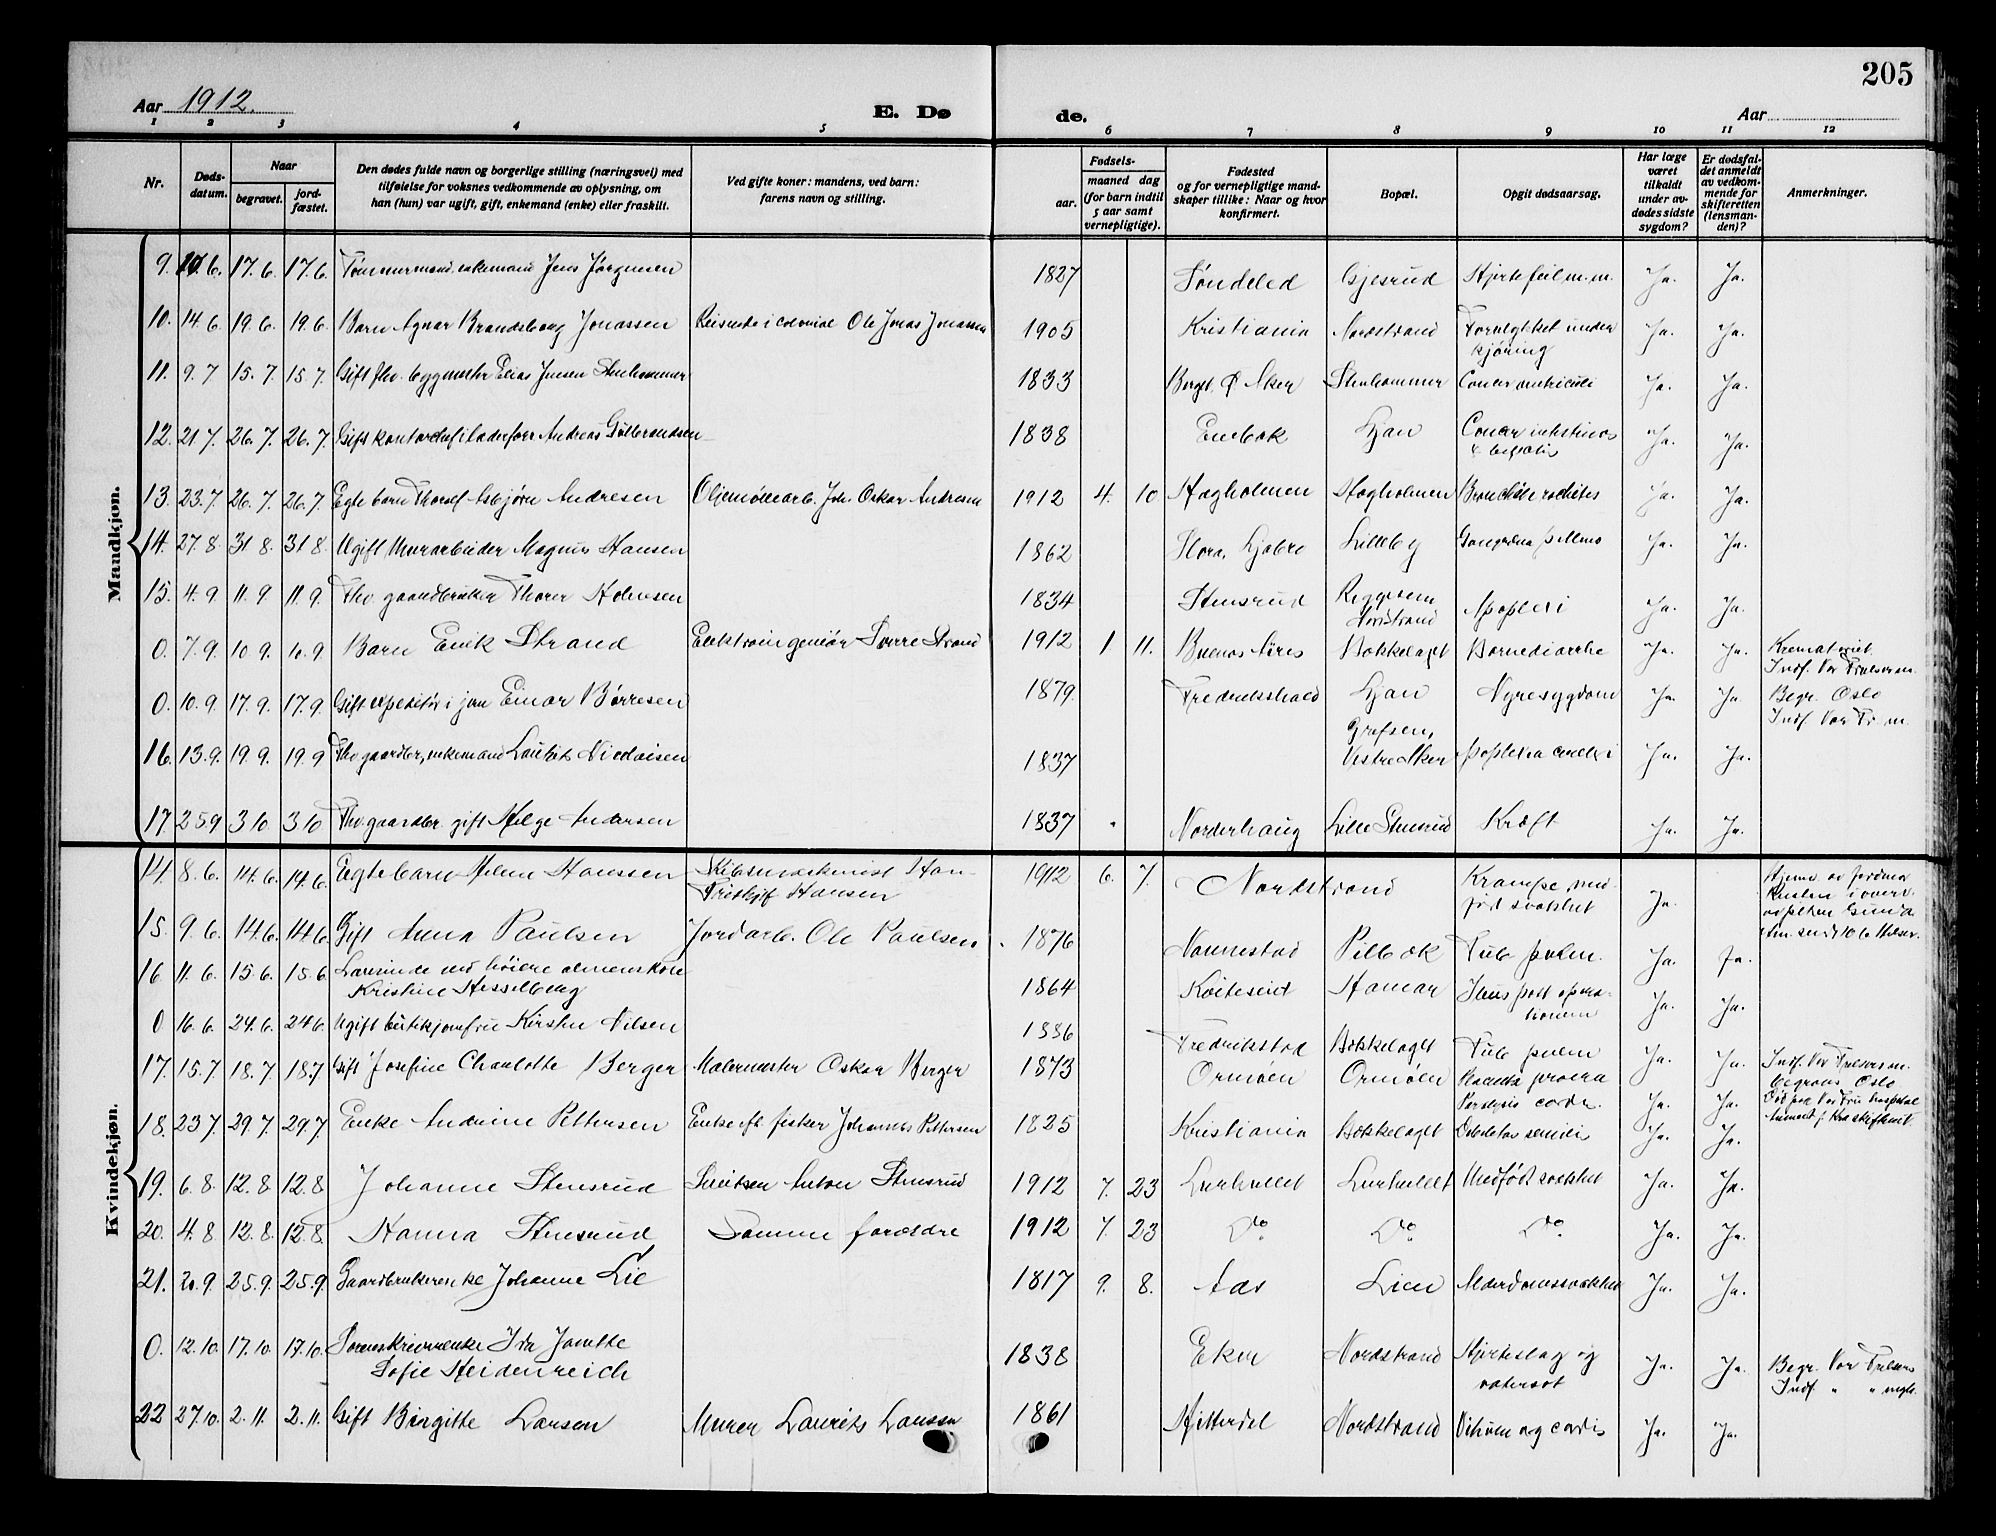 205
Aar 1912.
E. Dø de.
Aar
1 2 3 4 5 6 7 8 9 10 11 12
Nr.
Døds-
datum.
Naar
begravet.
jord-
fæstet.
Den dødes fulde navn og borgerlige stilling (næringsvei) med
tilføielse for voksnes vedkommende av oplysning, om
han (hun) var ugift, gift, enkemand (enke) eller fraskilt.
Ved gifte koner: mandens, ved barn:
farens navn og stilling.
Fødsels-
aar.
maaned dag
(for barn indtil
5 aar samt
vernepligtige).
Fødested
og for vernepligtige mand-
skaper tillike: Naar og hvor
konfirmert.
Bopæl.
Opgit dødsaarsag.
Har læge
været
tilkaldt
under av-
dødes sidste
sygdom?
Er dødsfal-
det anmeldt
av vedkom-
mende for
skifteretten
(lensman-
den)?
Anmerkninger.
Mandkjøn.
9. 17.6. 17.6. Tømmermand, enkemand Jens Jørgensen 1827 Søndeled Gjesrud Hjertefeil m.m. Ja. Ja.
10. 14.6. 19.6. 19.6. Barn Agnar Brandsborg Jonassen Reisende i colonial Ole Jonas Jonassen 1905 Kristiania Nordstrand Forulykket under Ja. Ja.
kjøring
11. 9.7 15.7. 15.7. Gift fhv. byggmester Elias Jensen Stenhammer 1833 Ø Aker Stenhammer Cancer ventriculi Ja. Ja.
12. 21 7. 26.7. 26.7. Gift Andreas Gulbrandsen 1838 Ljan Cancer intestinas Ja. Ja.
13. 23.7 26.7. 26.7. Egte barn Thoralf Asbjørn Andresen Oljemøllearb. Joh. Oskar Andresen 1912 4. 10 Hagholmen Hagholmen Ja. Ja.
14. 27.8. 31 8. 31 8. Ugift Murarbeider Magnus Hansen 1862 Ljabro Lilleby Ja. Ja.
15. 4.9 11.9 11.9. Fhv. gaardbruker Thorer Halvorsen 1834 Stensrud Apoplexi Ja. Ja.
Nordstrand
0. 7.9. 10 9. 10.9 Barn Erik Strand Elektroingeniør Sverre Strand 1912 1 11. Buenos Aires Bækkelaget Barnediarrhe Ja. Ja. Krematoriet.
Indf. Vor Frelsers m.
0. 10.9 17.9. 17.9. Gift expeditør i jern Einar Børresen 1879. Fredrikshald Ljan Nyresygdom Ja. Ja Begr. Oslo
Indf. Vor Fr. m.
16. 13.9. 19.9. 19.9 Fhv gaardbr, enkemand Lauritz Nicolaisen 1837 Grefsen, Ja. Ja.
Vestre Aker
17 25 9 3 10. 3 10 Fhv. gaardbr. gift Helge Andersen 1837 Norderhaug Lille Stensrud Kræft Ja. Ja.
Kvindekjøn.
14. 8.6. 14.6. 14.6. Egtebarn Helene Hanssen Skibsmaskinist Han- 1912 6. 7. Nordstrand Krampe, med- Ja.
Fritchjof Hansen født svakhet
15. 9.6. 14.6. 14.6. Gift Anna Paulsen Jordarb. Ole Paulsen 1876 Nannestad Pilbæk Tub. pulm. Ja. Ja.
16 11.6. 15.6. 15.6 Lærerinde ved høiere almenskole 1864 Hamar Ileus post opera- Ja. Ja.
Kristine Hesselberg tionem
0 16.6. 24.6. 24 6. Ugift butikjomfru Kirsten Nilsen 1886 Fredrikstad Bækkelaget Tub. pulm Ja. Ja.
17. 15.7 18.7 18.7 Gift Josefine Charlotte Berger Malermester Oskar Berger 1873 Ormøen Ormøen Placenta prævia Ja. Ja. Indf. Vor Frelsers m.
Paralysis cordis. begravs Oslo
18. 23 7. 29.7. 29.7. Enke Andrine Pettersen Enke eft. fisker Johannes Pettersen 1825 Kristiania Bækkelaget Debilitas senilis Ja. Ja.
19. 6.8. 12.8 12.8 Johanne Stensrud Anton Stensrud 1912 7. 23 Medfødt svakhet Ja. Ja.
20. 4.8 12.8. 12.8. Hanna Stensrud Samme forældre 1912 7. 23 Do. Do. Do. Ja. Ja.
21. 20.9. 25.9. 25.9. Gaardbrukerenke Johanne Lie 1817 9. 8. Aas Lien Alderdomssvakhet Ja. Ja.
0. 12.10 17.10. 17.10. Sorenskriverenke Ida Janette 1838 Eker Nordstrand Hjerteslag og Ja. Ja. Begr. Vor Frelsers
Sofie Heidenreich vatersot Indf. " "
22 27.10. 2.11. 2.11. Gift Birgitte Larsen Murer Laurits Larsen 1861 Hitterdal Nordstrand Vitium org. cordis Ja. Ja.